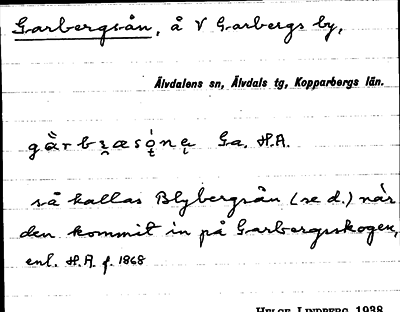 Garbergsån, å V Garbergs by,
Älvdalens sn, Älvdals tg, Kopparbergs län.
Ga. H.A.
så kallas Blybergsån (se d.) når
den kommit in på Garbergsskogen,
enl. H.A. f. 1868
HELGE LINDBERG 1938